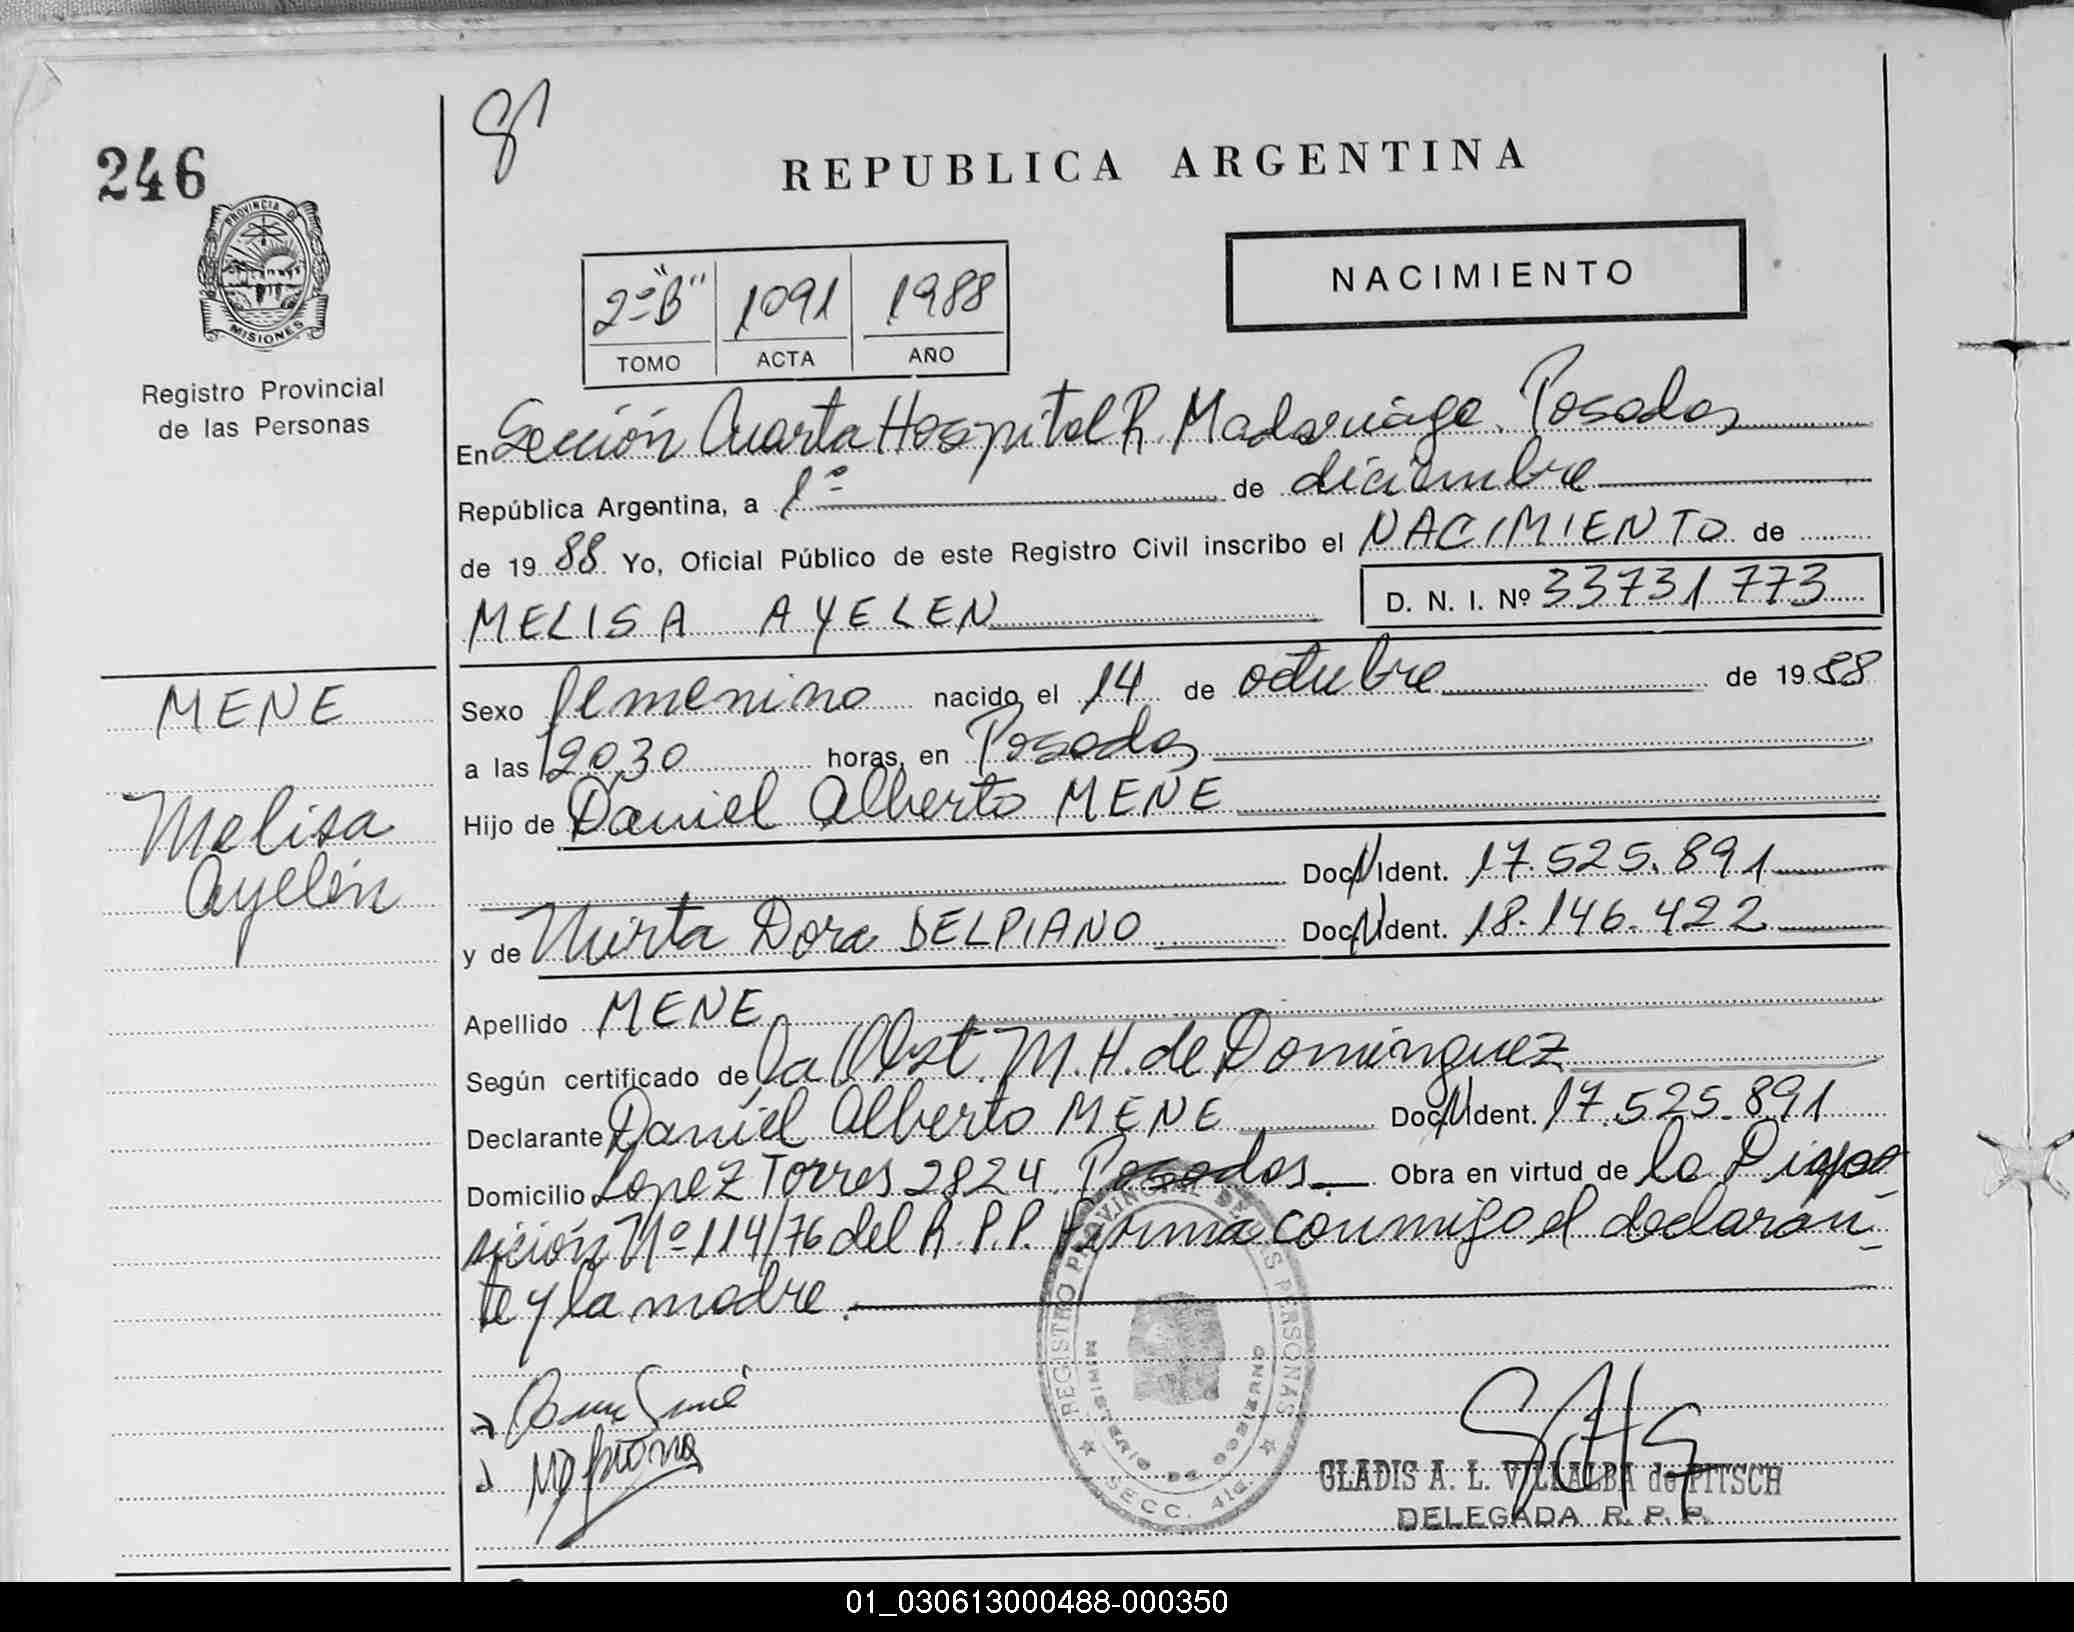 246
PROVINCIA DE
MISIONES
Registro Provincial
de las Personas
MENE
Melisa
Ayelén
REPUBLICA ARGENTINA
NACIMIENTO
2º "B" 1091 1988
TOMO ACTA AÑO
En Sección Cuarta Hospital R. Madariaga. Posadas
República Argentina, a 1º de diciembre
de 19 88 Yo, Oficial Público de este Registro Civil inscribo el NACIMIENTO de
MELISA AYELEN D. N. I. Nº 33731773
Sexo femenino nacido el 14 de octubre de 19 88
a las 12030 horas, en Posadas
Hijo de Daniel Alberto MENE
Doc. N. Ident. 17.525.891
y de Mirta Dora DELPIANO Doc. N. Ident. 18.146.422
Apellido MENE
Según certificado de la Obst. M. H. de Dominguez
Declarante Daniel Alberto MENE Doc. N. Ident. 17.525.891
Domicilio Lopez Torres 2824 Posadas. Obra en virtud de la Dispo
sición Nº 114/76 del R. P. P. Firma conmigo el declaran
te y la madre.
REGISTRO PROVINCIAL DE LAS PERSONAS
MINISTERIO DE GOBIERNO
SECC. 4ta.
GLADIS A. L. VILLALBA de PITSCH
DELEGADA R. P. P.
01_030613000488-000350